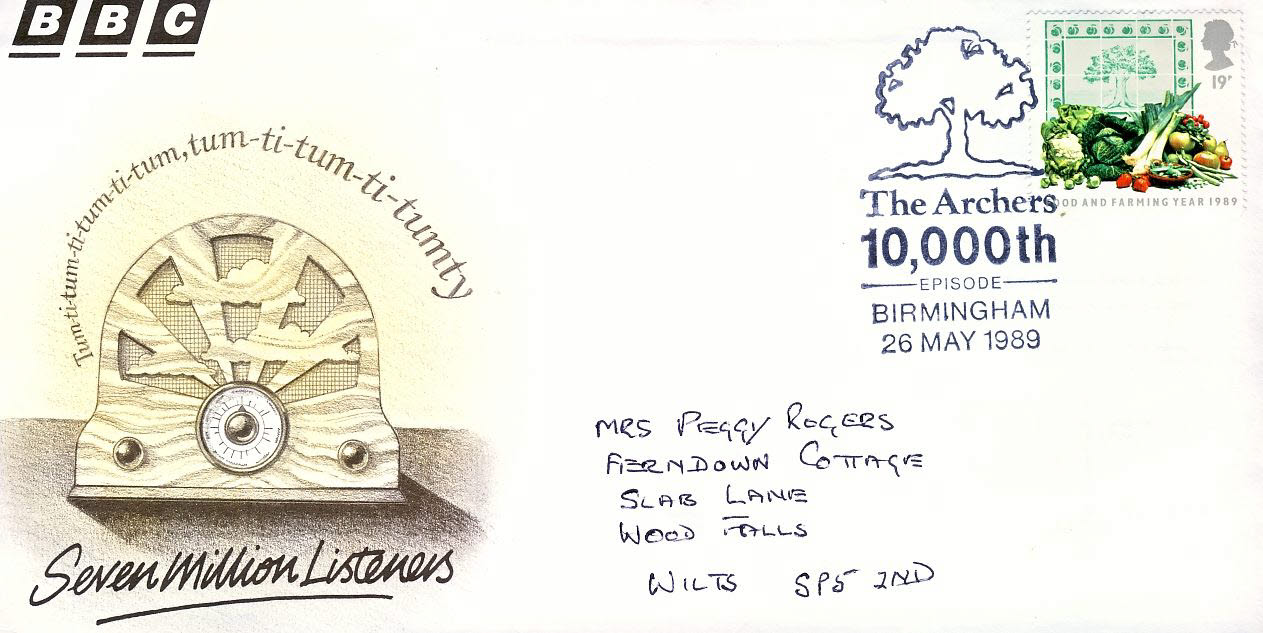 BBC
Tum-ti-tum-ti-tum-ti-tum, tum-ti-tum-ti-tumty
Seven Million Listeners
19P
FOOD AND FARMING YEAR 1989
The Archers
10,000th
EPISODE
BIRMINGHAM
26 MAY 1989
MRS PEGGY ROGERS
FERNDOWN COTTAGE
SLAB LANE
WOOD FALLS
WILTS SP5 2ND